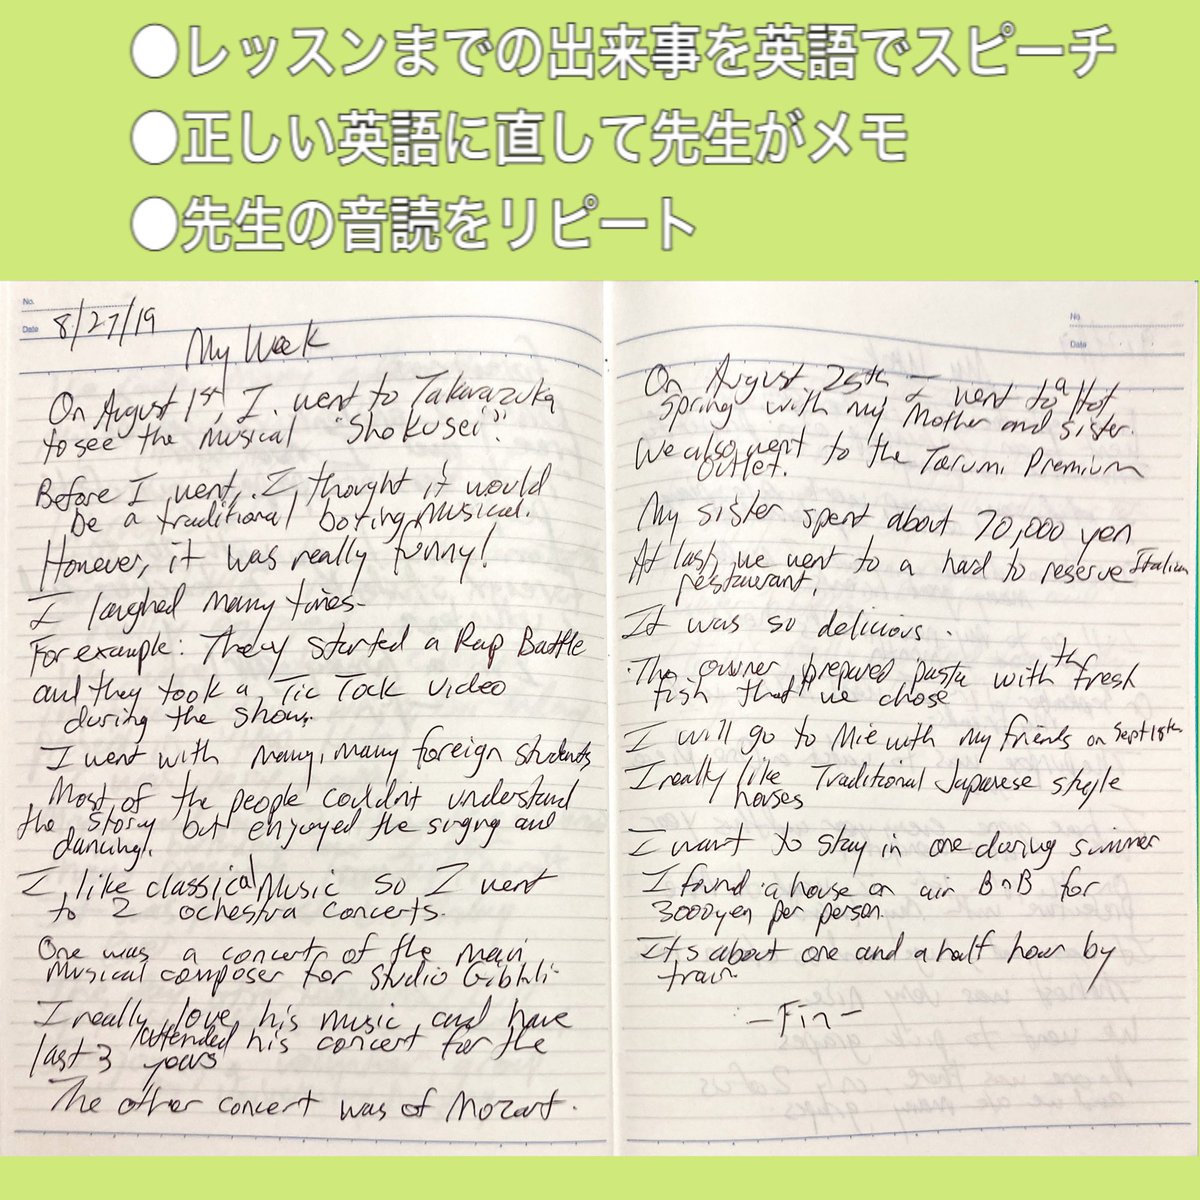 ●レッスンまでの出来事を英語でスピーチ
●正しい英語に直して先生がメモ
●先生の音読をリピート
No.
Date 8/27/19
My Week
On August 1st, I went to Takarazuka
to see the musical "Shokusei".
Before I went, I thought it would
be a traditional boring Musical.
However, it was really funny!
I laughed many times.
For example: They started a Rap Battle
and they took a Tic Tock video
during the show.
I went with many, many foreign students
Most of the people couldn't understand
the story but enjoyed the singing and
dancing.
I like classical Music so I went
to 2 ochestra concerts.
One was a concert of the main
musical composer for Studio Gibhli.
I really love his music and have
attended his concert for the
last 3 years
The other concert was of Mozart.
No.
Date
On August 25th I went to a Hot
spring with my Mother and sister.
We also went to the Tarumi Premium
Outlet.
My sister spent about 70,000 yen
At last, we went to a hard to reserve Italian
restaurant.
It was so delicious.
The owner prepared pasta with the fresh
fish that we chose
I will go to Mie with my friends on Sept 18th
I really like Traditional Japanese style
houses
I want to stay in one during summer
I found a house on air BnB for
3000yen per person.
It's about one and a half hour by
train.
-Fin-